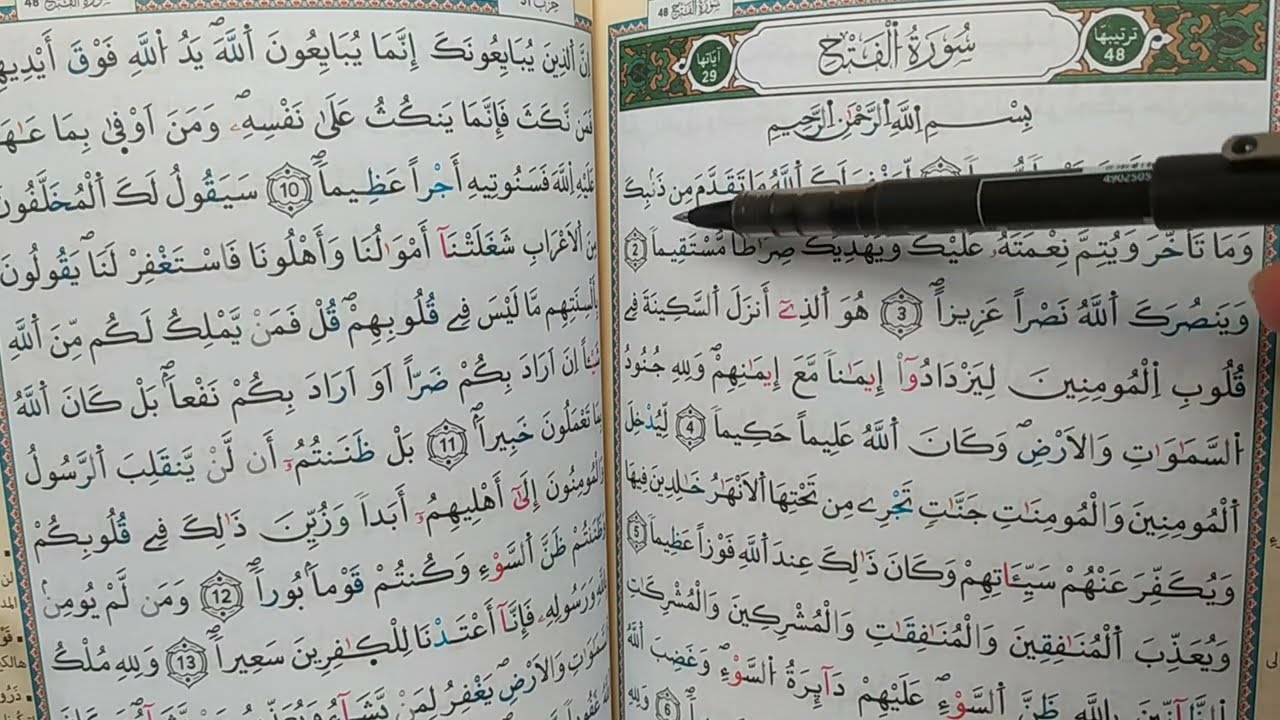 سُورَةُ الْفَتْحِ 48
تَرْتِيبُهَا
48
سُورَةُ اُ۬لْفَتْحِ
آيَاتُهَا
29
بِسْمِ اِ۬للَّهِ اِ۬لرَّحْمَٰنِ اِ۬لرَّحِيمِ
اَ۬للَّهُ مَا تَقَدَّمَ مِن ذَنۢبِكَ
وَمَا تَأَخَّرَ وَيُتِمَّ نِعْمَتَهُۥ عَلَيْكَ وَيَهْدِيَكَ صِرَٰطاٗ مُّسْتَقِيماٗ 2
وَيَنصُرَكَ اَ۬للَّهُ نَصْراً عَزِيزاًۖ 3 هُوَ اَ۬لذِےٓ أَنزَلَ اَ۬لسَّكِينَةَ فِے
قُلُوبِ اِ۬لْمُومِنِينَ لِيَزْدَادُوٓاْ إِيمَٰناٗ مَّعَ إِيمَٰنِهِمْۖ وَلِلهِ جُنُودُ
اُ۬لسَّمَٰوَٰتِ وَالَارْضِۖ وَكَانَ اَ۬للَّهُ عَلِيماً حَكِيماٗ 4 لِّيُدْخِلَ
اَ۬لْمُومِنِينَ وَالْمُومِنَٰتِ جَنَّٰتٖ تَجْرِے مِن تَحْتِهَا اَ۬لَانْهَٰرُ خَٰلِدِينَ فِيهَا
وَيُكَفِّرَ عَنْهُمْ سَيِّـَٔاتِهِمْ وَكَانَ ذَٰلِكَ عِندَ اَ۬للَّهِ فَوْزاً عَظِيماٗ 5
وَيُعَذِّبَ اَ۬لْمُنَٰفِقِينَ وَالْمُنَٰفِقَٰتِ وَالْمُشْرِكِينَ وَالْمُشْرِكَٰتِ
اِ۬لظَّآنِّينَ بِاللَّهِ ظَنَّ اَ۬لسَّوْءِ عَلَيْهِمْ دَآئِرَةُ اُ۬لسَّوْءِۖ وَغَضِبَ اَ۬للَّهُ
6 وَلِلهِ
سُورَةُ الْفَتْحِ 48
حِزْب 51
إِنَّ اَ۬لذِينَ يُبَايِعُونَكَ إِنَّمَا يُبَايِعُونَ اَ۬للَّهَۖ يَدُ اُ۬للَّهِ فَوْقَ أَيْدِيهِمْ
فَمَن نَّكَثَ فَإِنَّمَا يَنكُثُ عَلَىٰ نَفْسِهِۦۖ وَمَنَ اَوْفَىٰ بِمَا عَٰهَدَ
عَلَيْهِ اِ۬للَّهَ فَسَنُوتِيهِ أَجْراً عَظِيماٗۖ 10 سَيَقُولُ لَكَ اَ۬لْمُخَلَّفُونَ
مِنَ اَ۬لَاعْرَابِ شَغَلَتْنَآ أَمْوَٰلُنَا وَأَهْلُونَا فَاسْتَغْفِرْ لَنَاۖ يَقُولُونَ
بِأَلْسِنَتِهِم مَّا لَيْسَ فِے قُلُوبِهِمْۖ قُلْ فَمَنْ يَّمْلِكُ لَكُم مِّنَ اَ۬للَّهِ
شَيْـٔاً اِنَ اَرَادَ بِكُمْ ضَرّاً اَوَ اَرَادَ بِكُمْ نَفْعاَۢۖ بَلْ كَانَ اَ۬للَّهُ
بِمَا تَعْمَلُونَ خَبِيراَۢۖ 11 بَلْ ظَنَنتُمُۥٓ أَن لَّنْ يَّنقَلِبَ اَ۬لرَّسُولُ
وَالْمُومِنُونَ إِلَىٰٓ أَهْلِيهِمُۥٓ أَبَداٗ وَزُيِّنَ ذَٰلِكَ فِے قُلُوبِكُمْ
وَظَنَنتُمْ ظَنَّ اَ۬لسَّوْءِ وَكُنتُمْ قَوْماَۢ بُوراٗۖ 12 وَمَن لَّمْ يُومِنۢ
بِاللَّهِ وَرَسُولِهِۦ فَإِنَّآ أَعْتَدْنَا لِلْكٰ۪فِرِينَ سَعِيراٗۖ 13 وَلِلهِ مُلْكُ
اُ۬لسَّمَٰوَٰتِ وَالَارْضِۖ يَغْفِرُ لِمَنْ يَّشَآءُ وَيُعَذِّبُ مَنْ يَّشَآءُۖ وَكَانَ